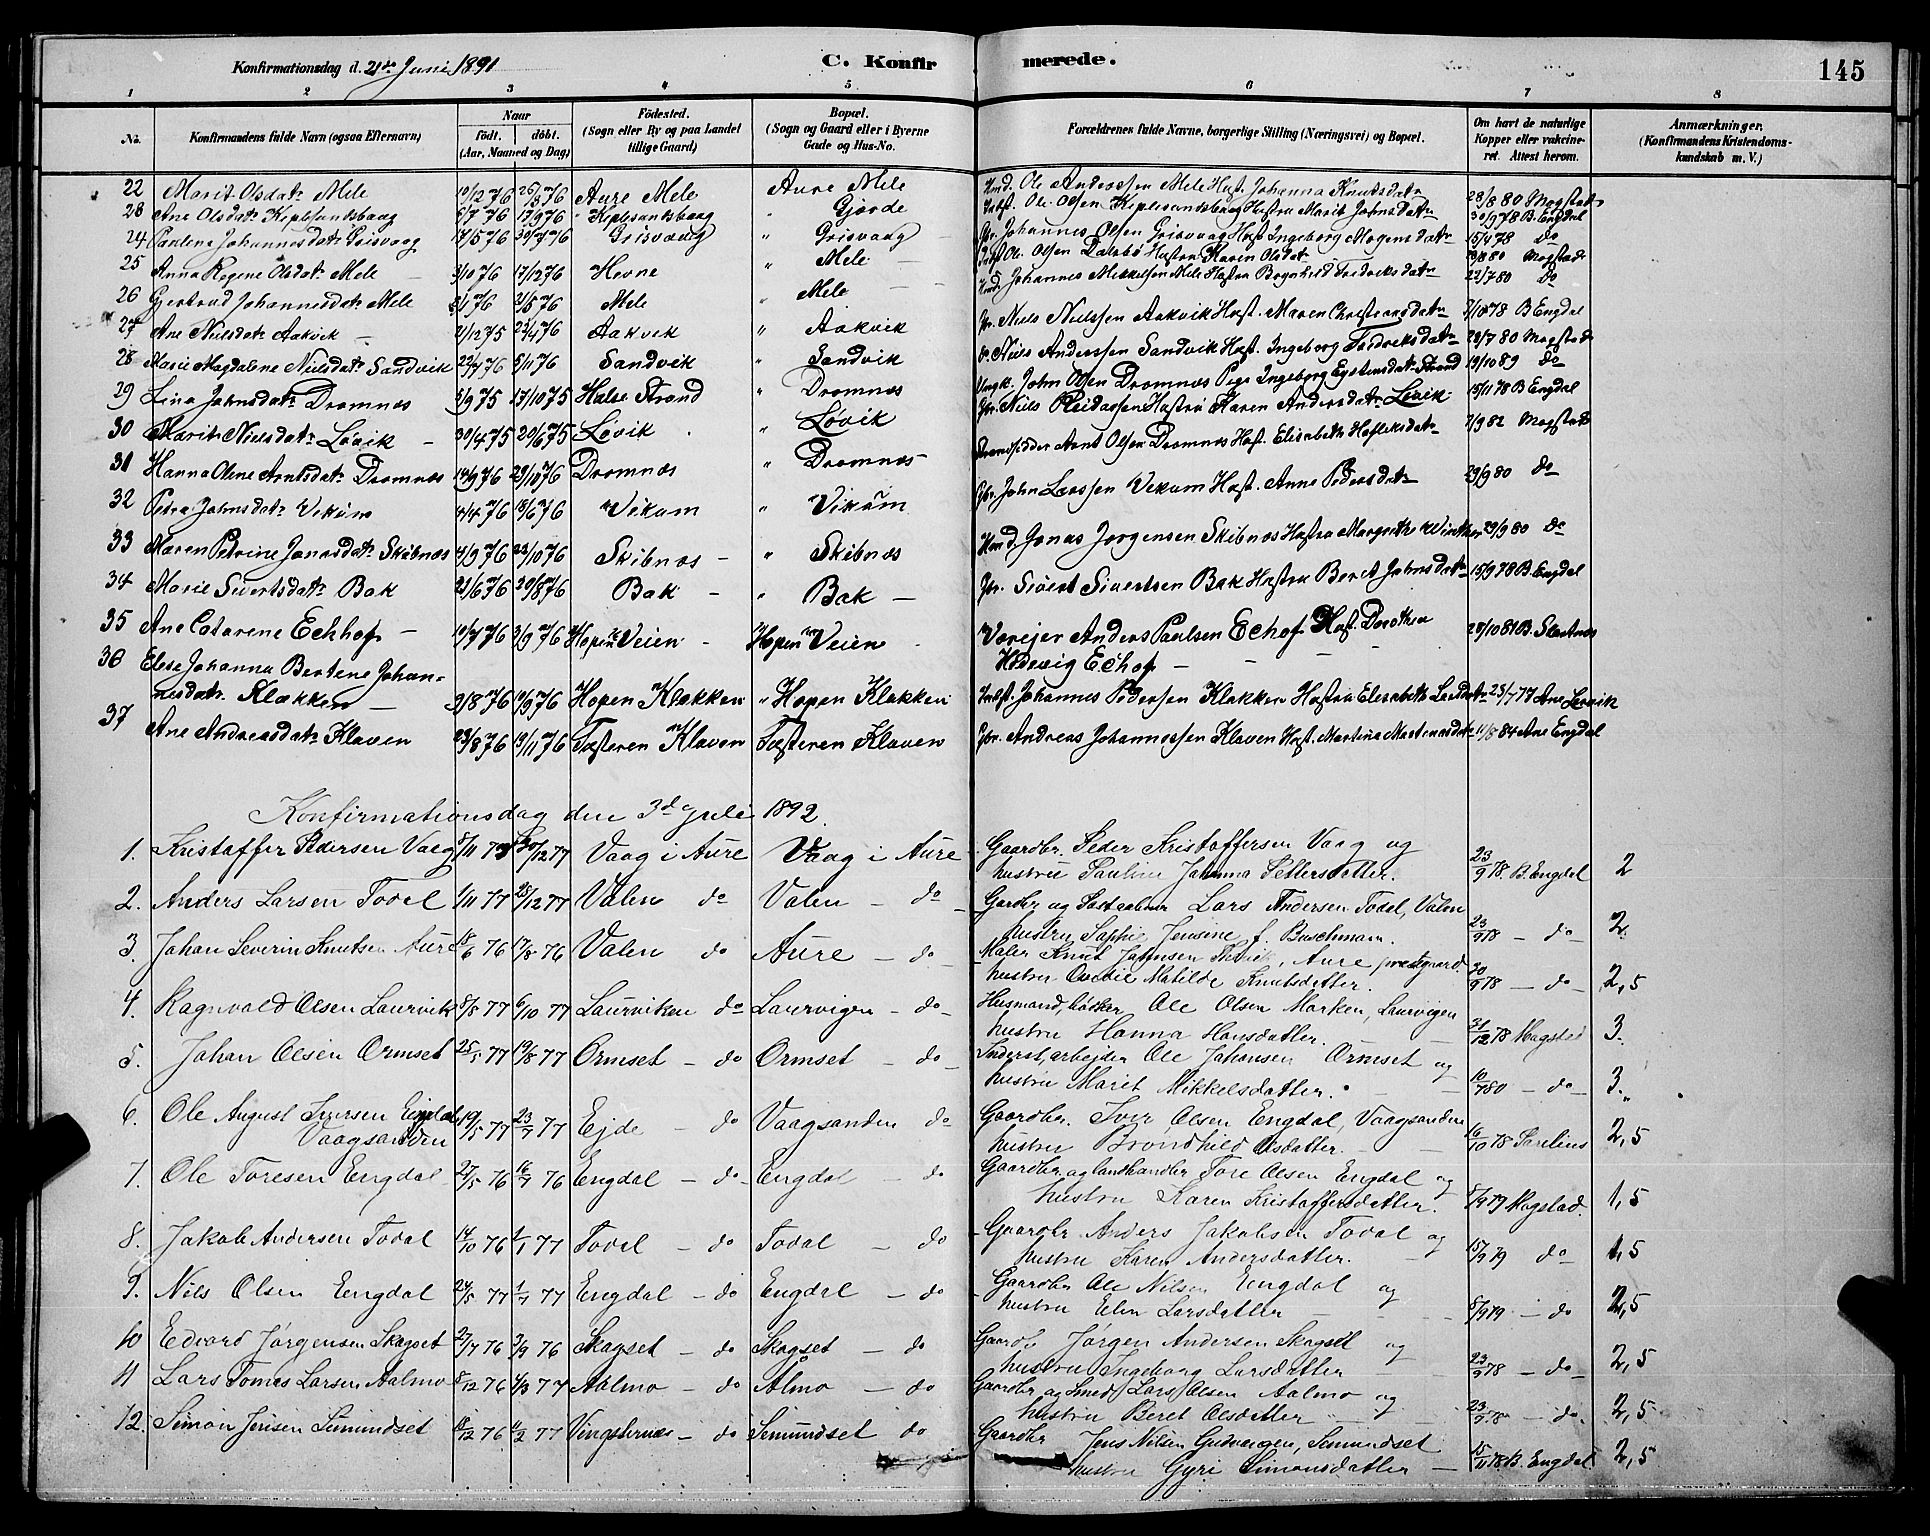 Konfirmationsdag d. 21de Juni 1891
C. Konfir
merede.
145
1 2 3 4 5 6 7 8
No. Konfirmandens fulde Navn (ogsaa Efternavn) Naar født. døbt. (Aar, Maaned og Dag) Fødested. (Sogn eller By og paa Landet tillige Gaard) Bopæl. (Sogn og Gaard eller i Byerne Gade og Hus-No. Forældrenes fulde Navne, borgerlige Stilling (Næringsvei) og Bopæl. Om havt de naturlige Kopper eller vakcineret. Attest herom. Anmærkninger. (Konfirmandens Kristendomskundskab m. V.)
22 Marit Olsdatr Mele 10/12 76 Aure Mele Aure Mele Hmd. Ole Anderssen Mele Hust. Johanna Knutsdatr 28/8 80 Mogstad
23 Ane Olsdatr Kiplesundsbaag 5/7 76 17/9 76 Kiplesundsbaag " Gjørde Ole Olsen Kiplesundsbaag Hustru Marit Johnsdatr 30/9 78 B. Engdal
24 Paulena Johannesdatr Grisvaag 14/5 76 30/7 76 Grisvaag " Grisvaag Gbr. Johannes Olsen Grisvaag Hust. Ingeborg Mogensdatr 15/4 78 do
25 Anna Regene Olsdatr Mele 3/10 76 17/12 76 Hevne " Mele Ole Olsen Dalsbø Hustru Karen Olsdat 80 Mogstad
26 Gjertrud Johannesdatr Mele 76 2/5 76 Mele " Mele Johannes Mikkelsen Mele Hustru Brynhild Fredriksdatr 22/7 80 do
27 Ane Nielsdatr Aakvik 21/12 75 23/4 76 Aakvik " Aakvik Gbr. Niels Nielssen Aakvik Hust. Maren Christiansdatr 7/10 78 B Engdal
28 Marie Magdalene Nielsdatr Sandvik 22/7 76 5/11 76 Sandvik " Sandvik Niels Anderssen Sandvik Hust. Ingeborg Fredriksdatr 28/7 80 Mogstad
29 Lina Johnsdatr Dromnes 5/9 75 17/10 75 Halse Strand " Dromnæs Ungk. John Olsen Dromnæs Pige Ingeborg Eystensdatr Strand 19/10 89 do
30 Marit Nielsdatr Løvik 30/4 75 20/6 75 Løvik " Løvik Gbr. Niels Hustru Karen Andersdatr Løvik 15/11 78 B Engdal
31 Hanna Oline Arntsdatr Dromnæs 14/9 76 29/10 76 Dromnæs " Dromnæs Strandsidder Arnt Olsen Dromnæs Hust. Elisabeth 7/9 82 Mogstad
32 Petra Johnsdatr Vikum 4/4 76 18/6 76 Vikum " Vikum Gbr. John Larssen Vikum Hust. Anne Pedersdatr 29/9 80 do
33 Maren Petrine Jonasdatr Skibnæs 4/9 76 22/10 76 Skibnæs " Skibnæs Hmd. Jonas Jørgensen Skibnæs Hustru Margrethe Winther 29/9 80 do
34 Marie Sivertsdatr Bak 22/6 76 20/8 76 Bak " Bak Gbr. Sivert Sivertsen Bak Hustru Beret Johnsdatr 15/9 78 B. Engdal
35 Ane Catarene Echhof 10/7 76 3/9 76 Hopen Veien Hopen Veien Værejer Anders Paulsen Echof Hust. Dorothea 28/10 81 B.
36 Elise Johanna Bertene Johan- Hedevig Echof
nesdatr. Klækken 2/8 76 76 Hopen Klækken " Hopen Klakken Johannes Pedersen Klakken Hustru Elisabeth Larsdatr 23/7 77 Ane Løvvik
37 Ane Andreasdatr Klaven 23/8 76 19/11 76 Tusteren Klaven Tusteren Klaven Gbr. Andreas Johannessen Klaven Hust. Martina 11/8 84 Ane Engdal
Konfirmationsdag den 3de Juli 1892.
1. Kristaffer Pedersen Vaag 77 Vaag i Aure Vaag i Aure Gaardbr. Peder Kristaffersen Vaag og
hustru Pauline Johanna Pettersdatter. 23/9 78. B. Engdal 2
2. Anders Larsen Todal 1/11 77 25/12 77 Valen do Valen - do Gardbr og Postaabner Lars Andersen Todal, Valen
hustru Sophie Jensine f. Buschmann. 23/9 78 - do - 2.
3. Johan Severin Knutsen Aure 18/6 76 17/8 76 Valen do Aure - do - Maler Knut Johnsen, Aure prestegaard.
hustru Matilde Knutsdatter. 30/9 78 - do - 2,5
4. Ragnvald Olsen Laurvik 8/8 77 6/10 77 Laurviken do Laurvigen - do - Husmand, bødker Ole Olsen Marken, Laurvigen
hustru Hanna Hansdatter. 31/12 78 Magstad 3.
5. Johan Olsen Ormset 25/5 77 19/8 77 Ormset - do Ormset - do - Inderst, arbejder Ole Johansen Ormset og
hustru Marit Mikkelsdatter. 10/7 80 - do - 3.
6. Ole August Iversen Engdal 19/5 77 23/7 77 Ejde - do Vaagsanden do Gaardbr. Iver Olsen Engdal, Vaagsanden
Vaagsanden hustru Brondhild Olsdatter. 16/10 78 2,5
7. Ole Toresen Engdal 27/5 76 16/7 76 Engdal - do - Engdal - do Gaardbr. og landhandler Tore Olsen Engdal og
hustru Karen Kristaffersdatter. 5/9 79 Magstad. 1,5
8. Jakob Andersen Todal 14/10 76 1/1 77 Todal - do Todal - do Gaardbr Anders Jakobsen Todal og
hustru Karen Andersdatter. 15/9 79 do 1,5
9. Nils Olsen Engdal 24/5 77 1/7 77 Engdal - do Engdal - do Gaardbr Ole Nilsen Engdal og
hustru Elen Larsdatter 5/9 79 - do 2,5
10 Edvard Jørgensen Skagset 27/7 76 3/9 76 Skagset - do Skagset - do Gaardb. Jørgen Andersen Skagset og
hustru Ingeborg Larsdatter 23/9 78 - do - 2,5
11 Lars Tomas Larsen Aalmo 8/12 76 4/3 77 Aalmo - do Almo - do Gaardbr og Smed Lars Olsen Aalmo og
hustru Beret Olsdatter 23/9 78 - do. 2,5
12. Simon Jensen Simundset 18/12 76 11/2 77 Vingsternæs - do Semundset do Gaardbr Jens Nilsen Gudvangen, Semundset
hustru Gyri Simonsdatter 15/11 78 B. Engdal 2,5